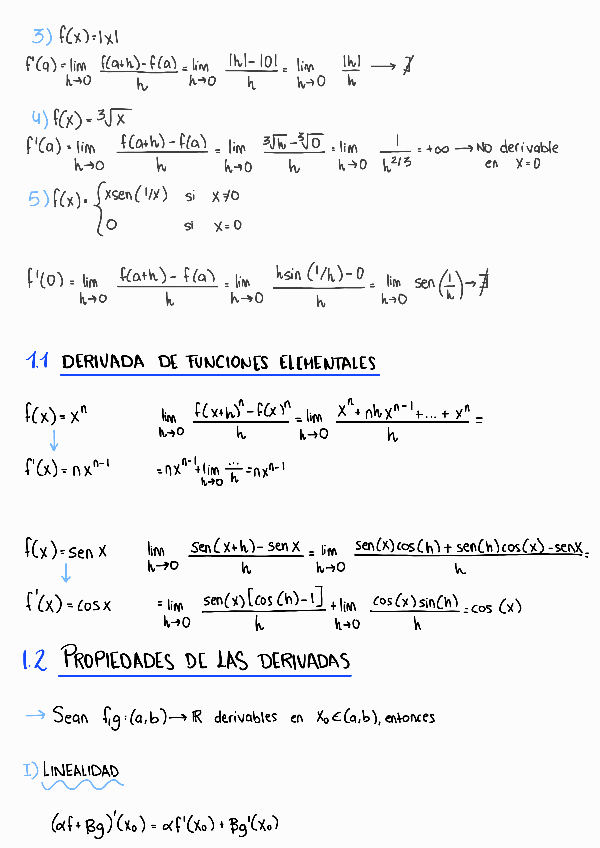 3) f(x)=|x|
f'(a)=lim h→0 f(a+h)-f(a)/h = lim h→0 |h|-|0|/h = lim h→0 |h|/h → ∄
4) f(x)=∛x
f'(a)=lim h→0 f(a+h)-f(a)/h = lim h→0 ∛h-∛0/h = lim h→0 1/h^2/3 = +∞ → NO derivable en x=0
5) f(x)= { xsen(1/x) si x≠0
0 si x=0
f'(0)=lim h→0 f(a+h)-f(a)/h = lim h→0 hsin(1/h)-0/h = lim h→0 sen(1/h) → ∄
1.1 DERIVADA DE FUNCIONES ELEMENTALES
f(x)=x^n lim h→0 f(x+h)^n-f(x)^n/h = lim h→0 x^n+nhx^n-1+...+x^n/h =
↓
f'(x)=nx^n-1 =nx^n-1+lim h→0 .../h =nx^n-1
f(x)=sen x lim h→0 sen(x+h)-sen x/h = lim h→0 sen(x)cos(h)+sen(h)cos(x)-senx/h =
↓
f'(x)=cosx =lim h→0 sen(x)[cos(h)-1]/h +lim h→0 cos(x)sin(h)/h =cos(x)
1.2 PROPIEDADES DE LAS DERIVADAS
→ Sean f,g:(a,b)→ℝ derivables en x₀∈(a,b), entonces
I) LINEALIDAD
(αf+βg)'(x₀)=αf'(x₀)+βg'(x₀)